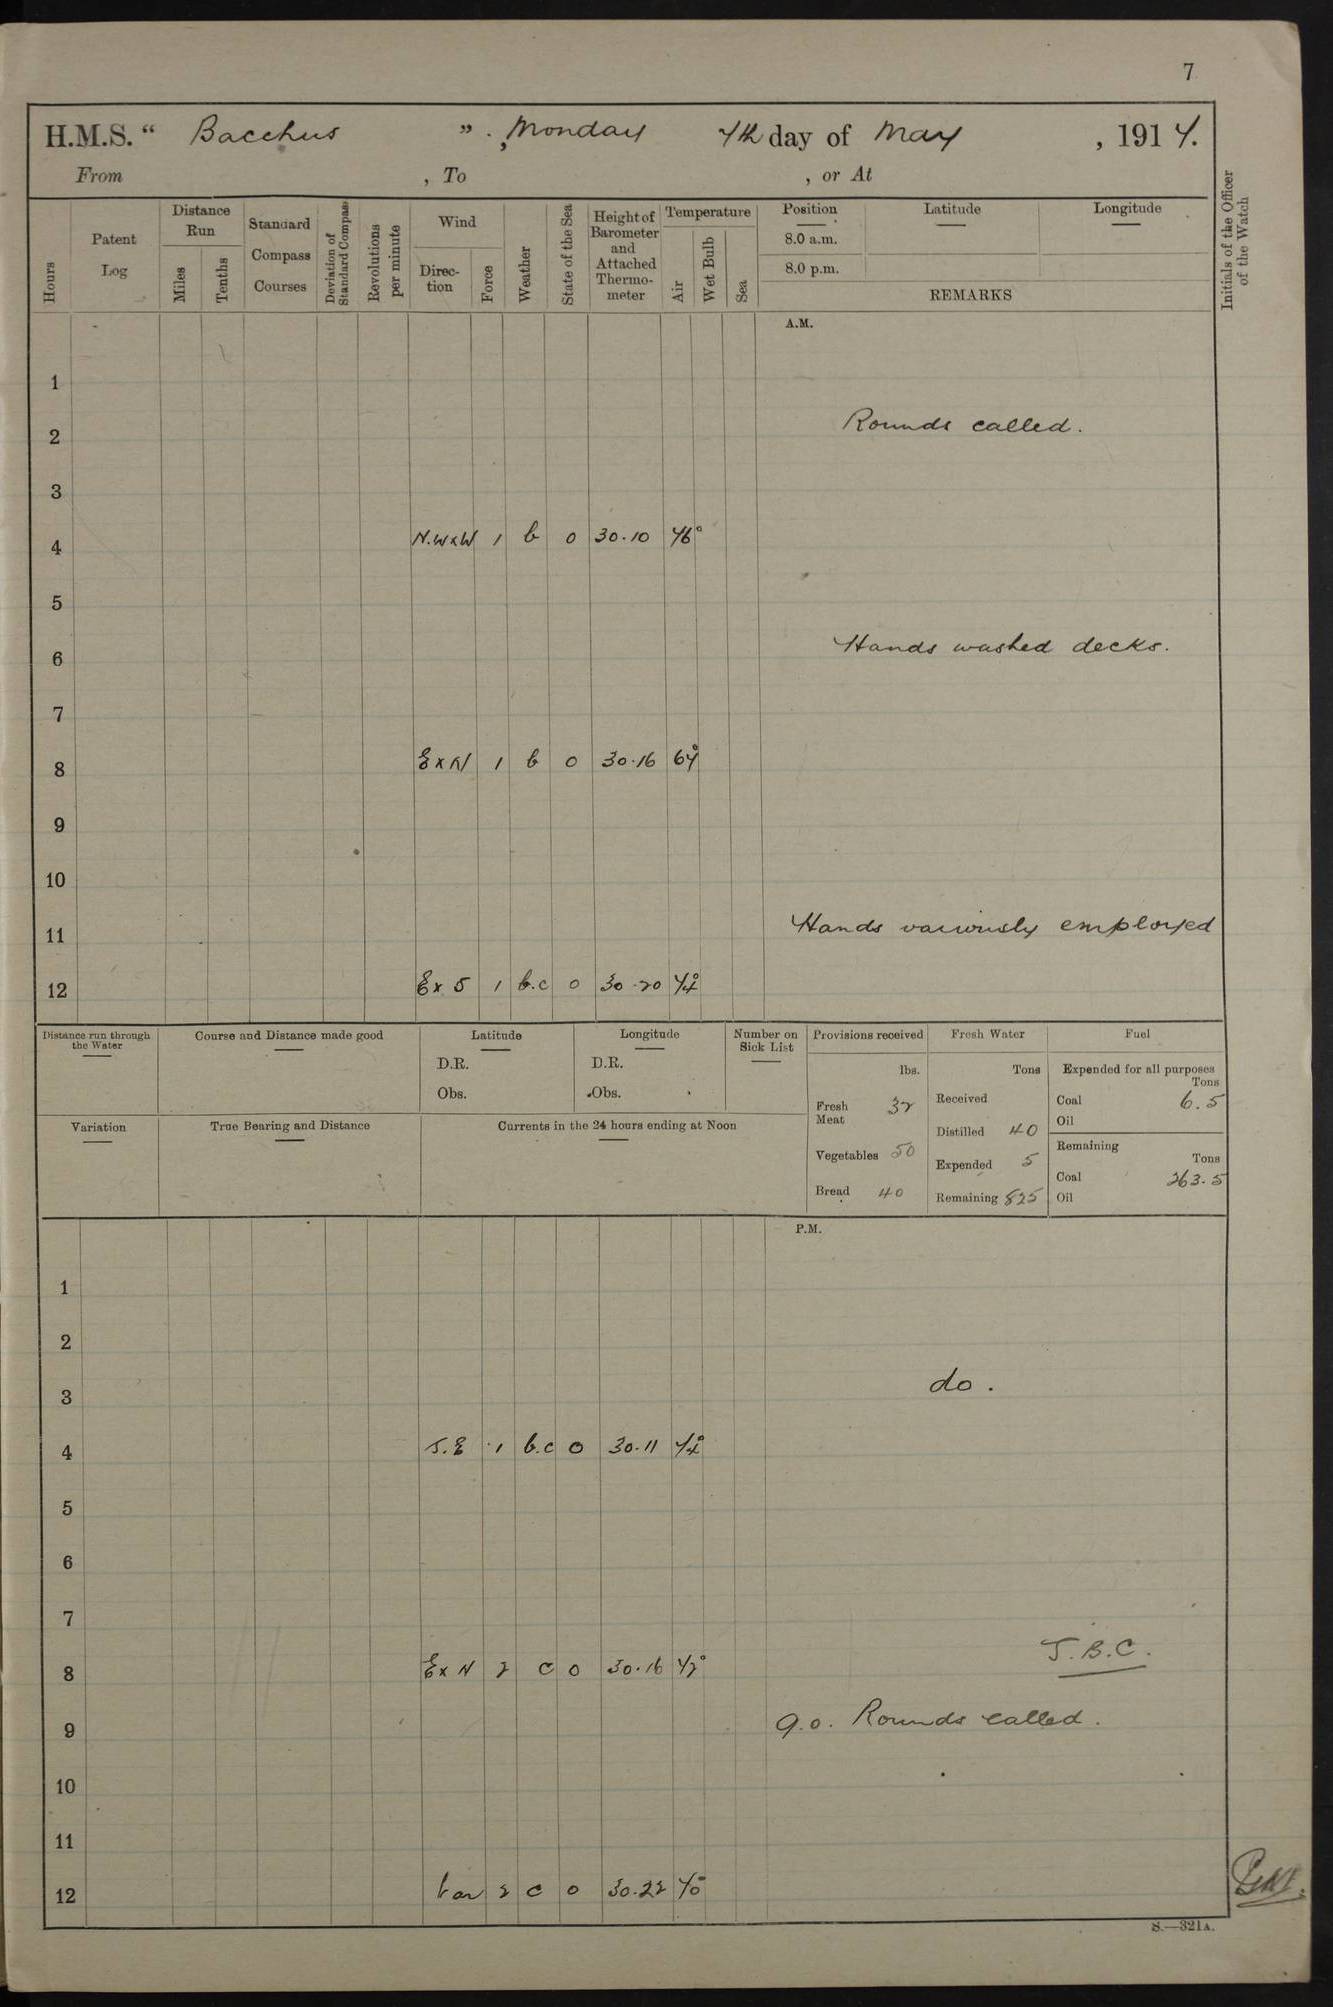 7
H.M.S. “ Bacchus ”, Monday 4th day of May , 1914.
From , To , or At
Hours
Patent Log
Distance Run
Miles
Tenths
Standard Compass Courses
Deviation of Standard Compass
Revolutions per minute
Wind
Direc-tion
Force
Weather
State of the Sea
Height of Barometer and Attached Thermo-meter
Temperature
Air
Wet Bulb
Sea
Position Latitude Longitude
8.0 a.m.
8.0 p.m.
REMARKS
Initials of the Officer of the Watch
A.M.
1
2 Rounds called.
3
4 N.W x W 1 b 0 30.10 46°
5
6 Hands washed decks.
7
8 E x N 1 b 0 30.16 64°
9
10
11 Hands variously employed
12 E x S 1 b.c 0 30.20
Distance run through the Water
Course and Distance made good
Latitude
D.R.
Obs.
Longitude
D.R.
Obs.
Number on Sick List
Provisions received
lbs.
Fresh Meat 32
Vegetables 50
Bread 40
Fresh Water
Tons
Received
Distilled 40
Expended 5
Remaining 825
Fuel
Expended for all purposes
Tons
Coal 6.5
Oil
Remaining
Tons
Coal 263.5
Oil
Variation
True Bearing and Distance
Currents in the 24 hours ending at Noon
P.M.
1
2
3 do.
4 S.E 1 b.c 0 30.11
5
6
7
8 E x N 2 c 0 30.16 J.B.C.
9 9.0. Rounds called.
10
11
12 var 2 c 0 30.22
S.—321A.